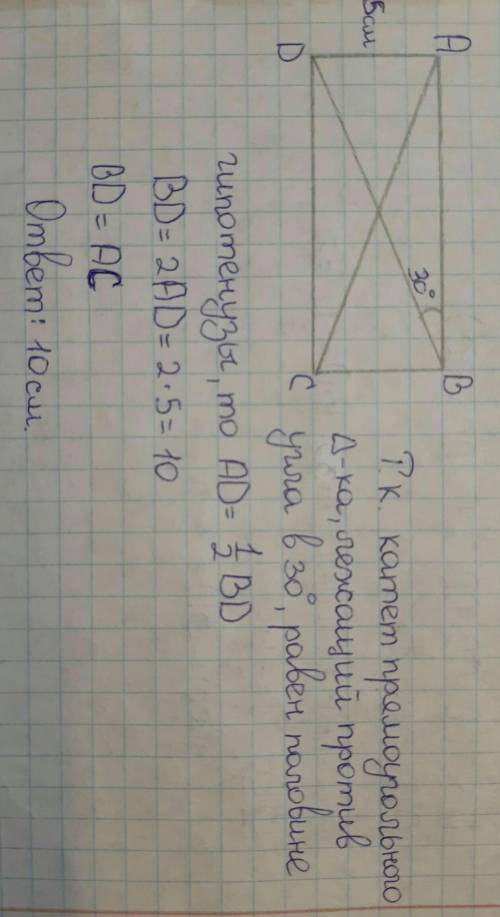 A
B
5см
30°
D
C
Т.к. катет прямоугольного
Δ-ка, лежащий против
угла в 30°, равен половине
гипотенузы, то AD = 1/2 BD
BD = 2AD = 2·5 = 10
BD = AC
Ответ: 10 см.